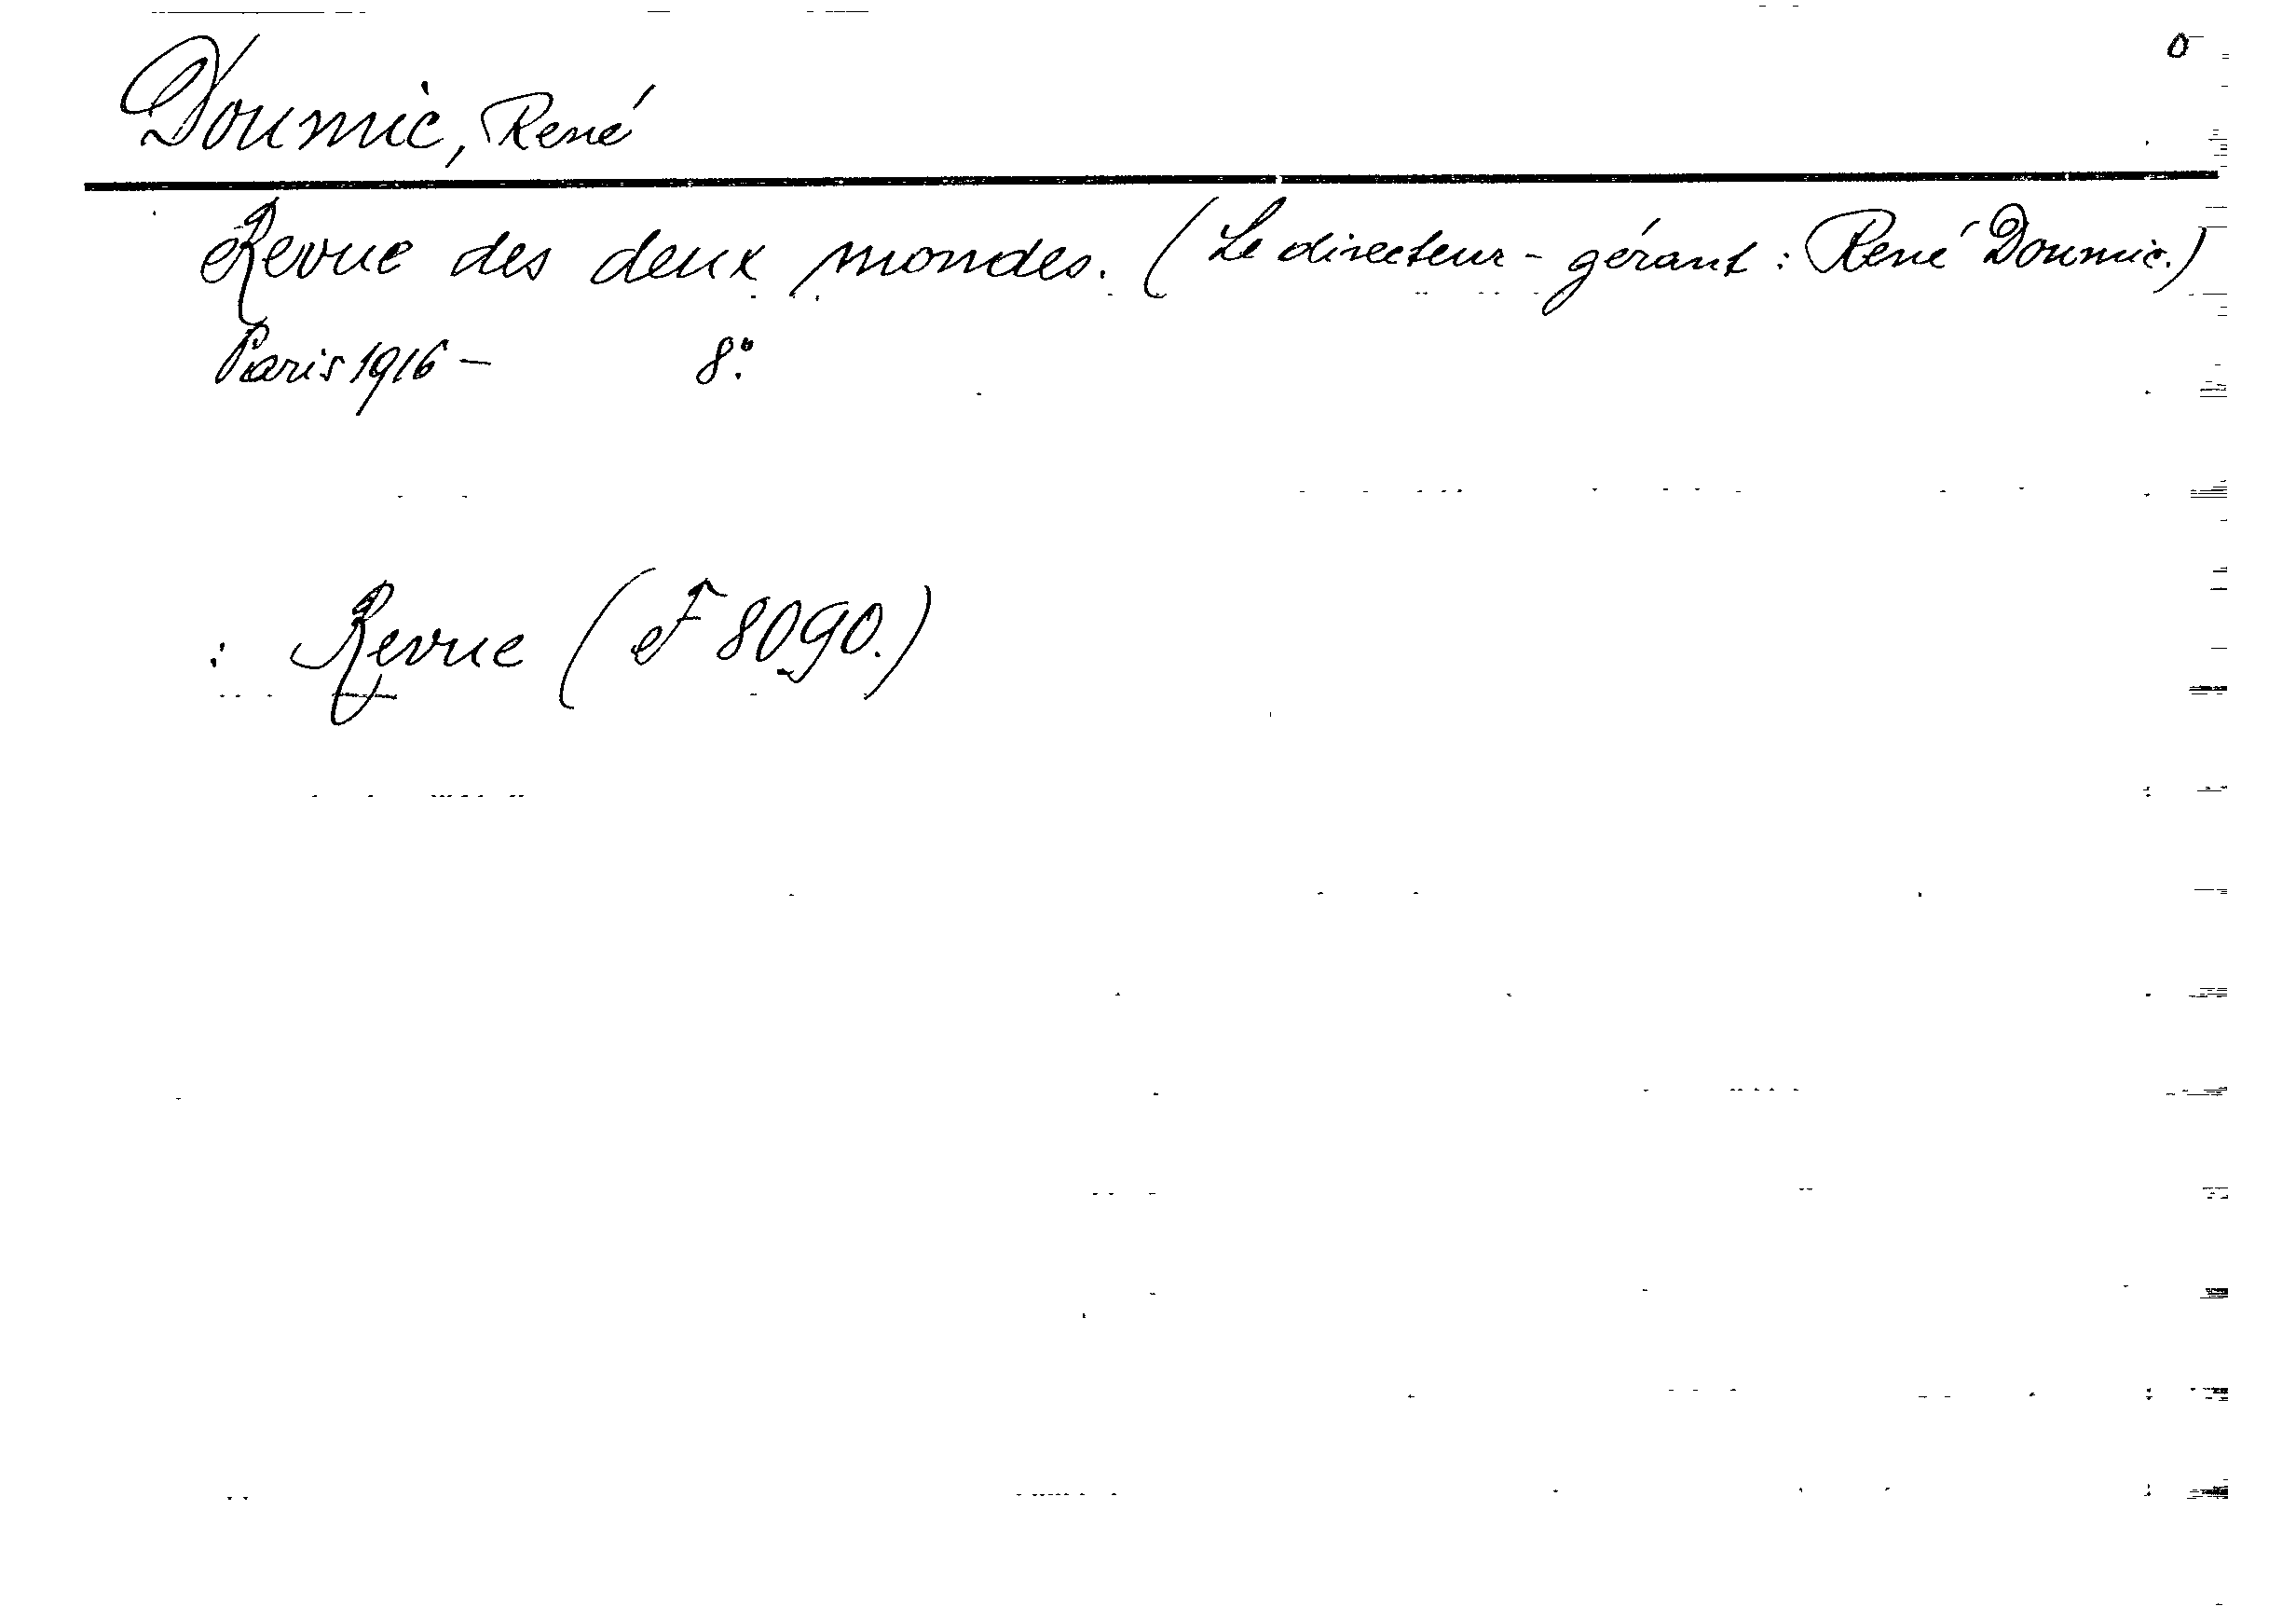 0
Doumic, René
Revue des deux mondes. (Le directeur-gérant: René Doumic.)
Paris 1916 - 8º.
: Revue (F 8090.)